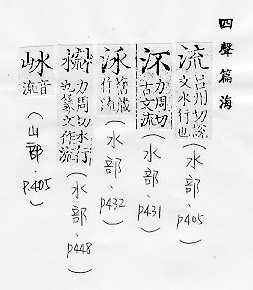 四聲篇海
流 呂州切說文水行也(水部、p405)
力周切古文流(水部、p431)
泳 舊藏作流(水部、p432)
力周切水行也篆文作流(水部、p448)
音流(山部、p405)